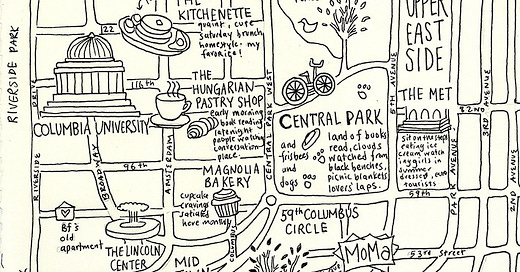 THE
KITCHENETTE
quaint, cute
saturday brunch,
homestyle: my
favorite!
122
RIVERSIDE PARK
UPPER
EAST
SIDE
THE MET
116th
THE
HUNGARIAN
PASTRY SHOP
early morning
book reading
late night
people watching
conversation
place.
COLUMBIA UNIVERSITY
RIVERSIDE
DRIVE
BROADWAY
AMSTERDAM
CENTRAL PARK WEST
CENTRAL PARK
land of books
read, clouds
watched from
black benches,
picnic blankets
lovers' laps.
and
frisbees
and
dogs
5th AVENUE
82ND
sit on the steps
eating ice
cream, watch
in
summer
tourists
PARK AVENUE
3RD AVENUE
2ND AVE
96th
MAGNOLIA
BAKERY
cupcake
cravings
satiated
here monthly
59th
59th COLUMBUS
CIRCLE
COLUMBUS
Bf's
old
apartment
THE LINCOLN
CENTER
MID
MoMa
53rd Street